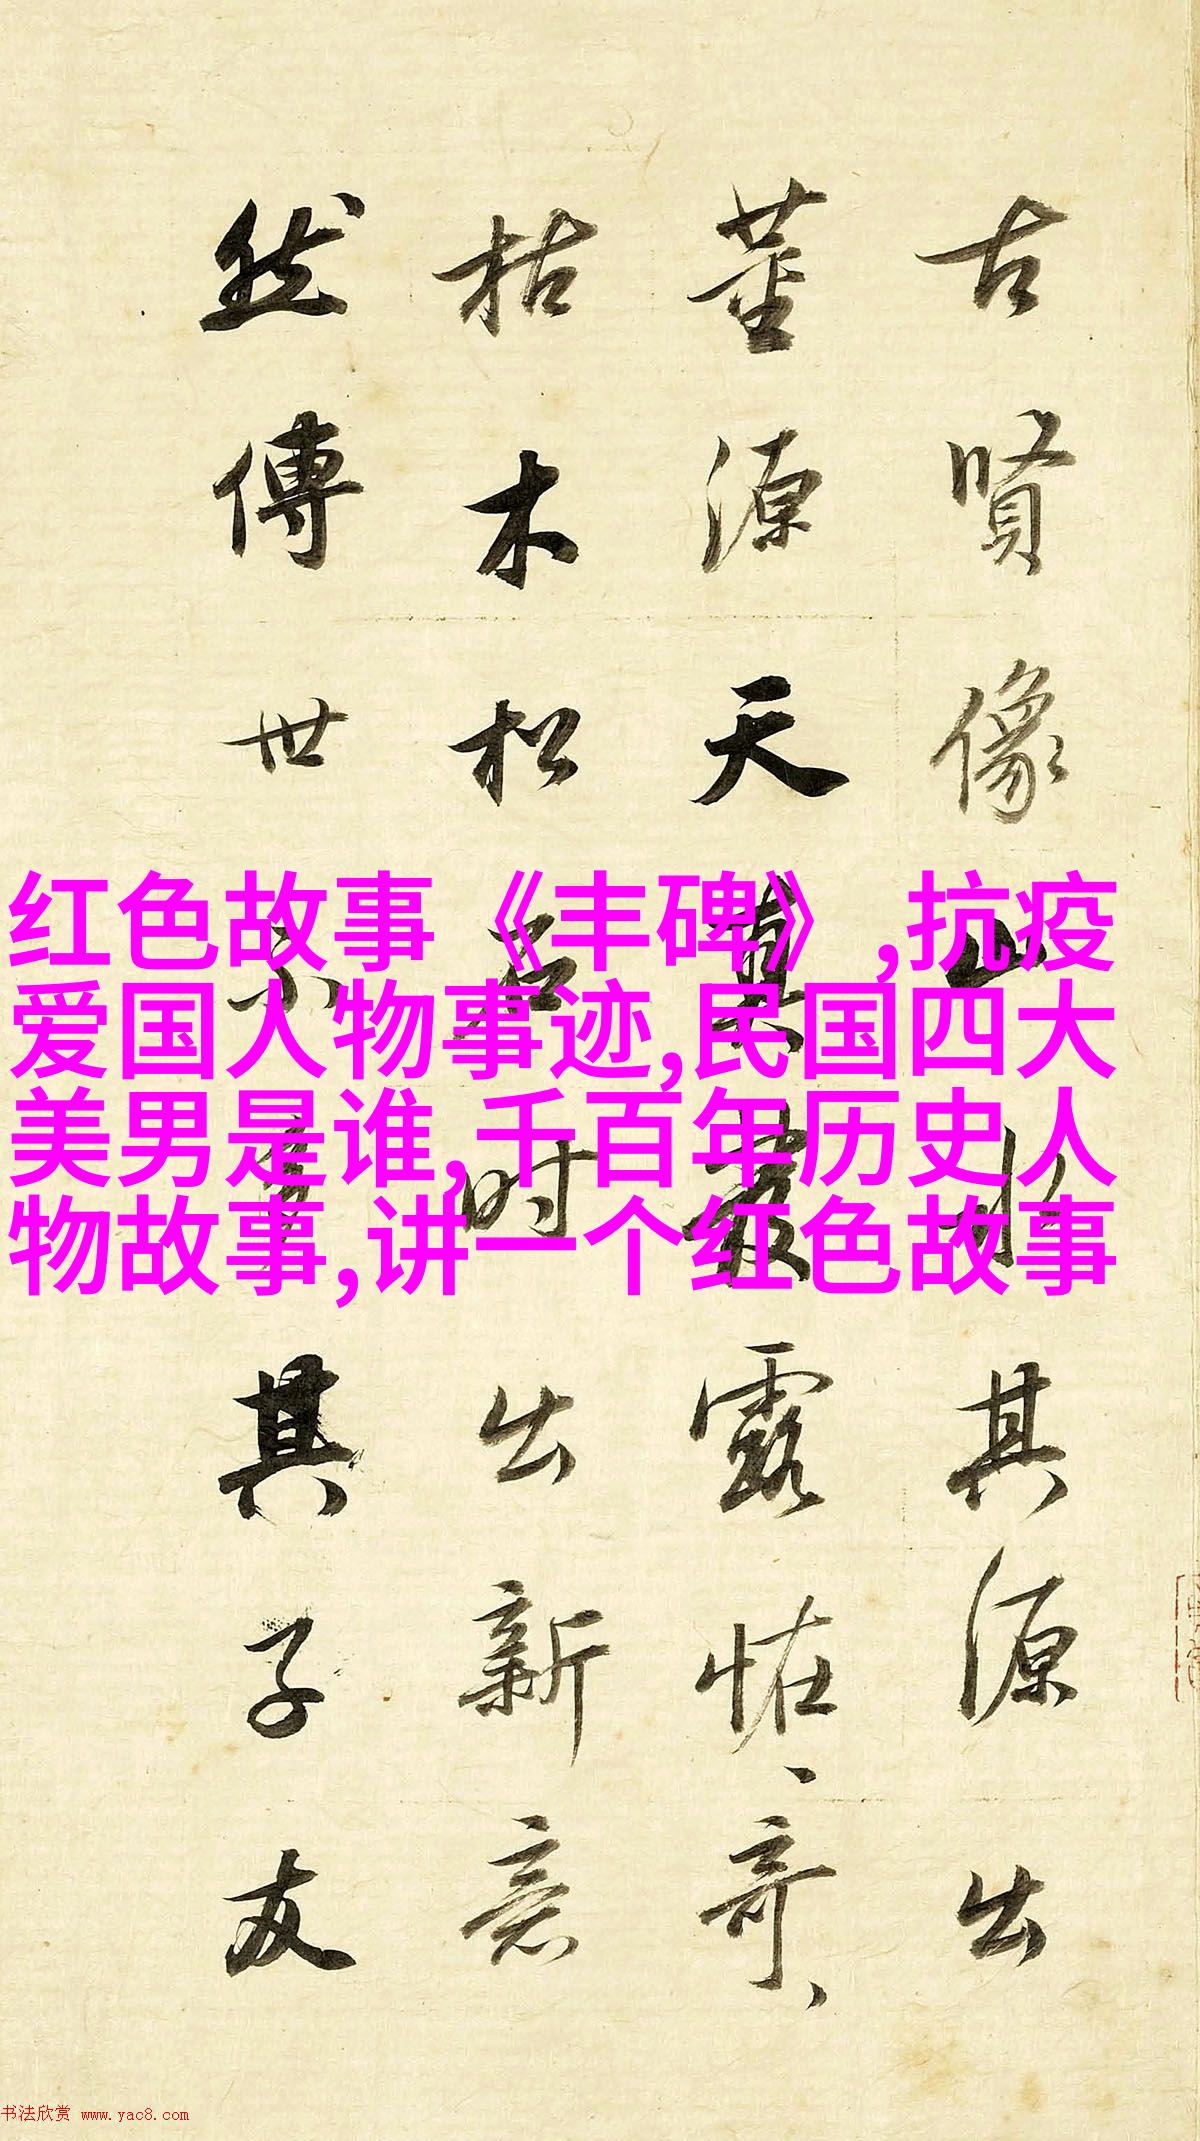 古賢像山水其源出
董源天真叢露怪奇
枯木松石時出新意
然傳世不其子友
红色故事《丰碑》,抗疫
爱国人物事迹,民国四大
美男是谁,千百年历史人
物故事,讲一个红色故事
书法欣赏 www.yac8.com